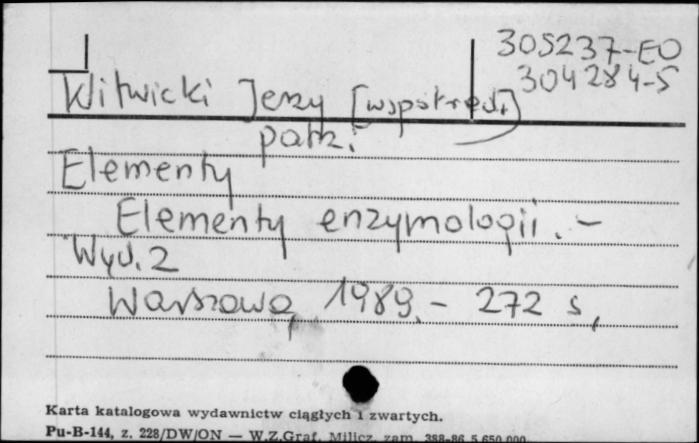 305237-EO
304284-S
Witwicki Jerzy [współred.]
patrz:
Elementy
Elementy enzymologii. -
Wyd. 2
Warszawa, 1989. - 272 s,
Karta katalogowa wydawnictw ciągłych i zwartych.
Pu-B-144, z. 228/DW/ON — W.Z.Graf. Milicz, zam. 388-86 5.650.000